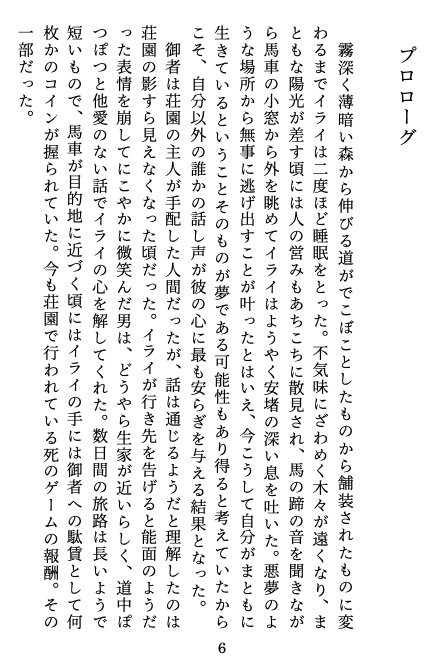 プロローグ
　霧深く薄暗い森から伸びる道がでこぼことしたものから舗装されたものに変
わるまでイライは二度ほど睡眠をとった。不気味にざわめく木々が遠くなり、ま
ともな陽光が差す頃には人の営みもあちこちに散見され、馬の蹄の音を聞きなが
ら馬車の小窓から外を眺めてイライはようやく安堵の深い息を吐いた。悪夢のよ
うな場所から無事に逃げ出すことが叶ったとはいえ、今こうして自分がまともに
生きているということそのものが夢である可能性もあり得ると考えていたから
こそ、自分以外の誰かの話し声が彼の心に最も安らぎを与える結果となった。
　御者は荘園の主人が手配した人間だったが、話は通じるようだと理解したのは
荘園の影すら見えなくなった頃だった。イライが行き先を告げると能面のようだ
った表情を崩してにこやかに微笑んだ男は、どうやら生家が近いらしく、道中ぽ
つぽつと他愛のない話でイライの心を解してくれた。数日間の旅路は長いようで
短いもので、馬車が目的地に近づく頃にはイライの手には御者への駄賃として何
枚かのコインが握られていた。今も荘園で行われている死のゲームの報酬。その
一部だった。
6